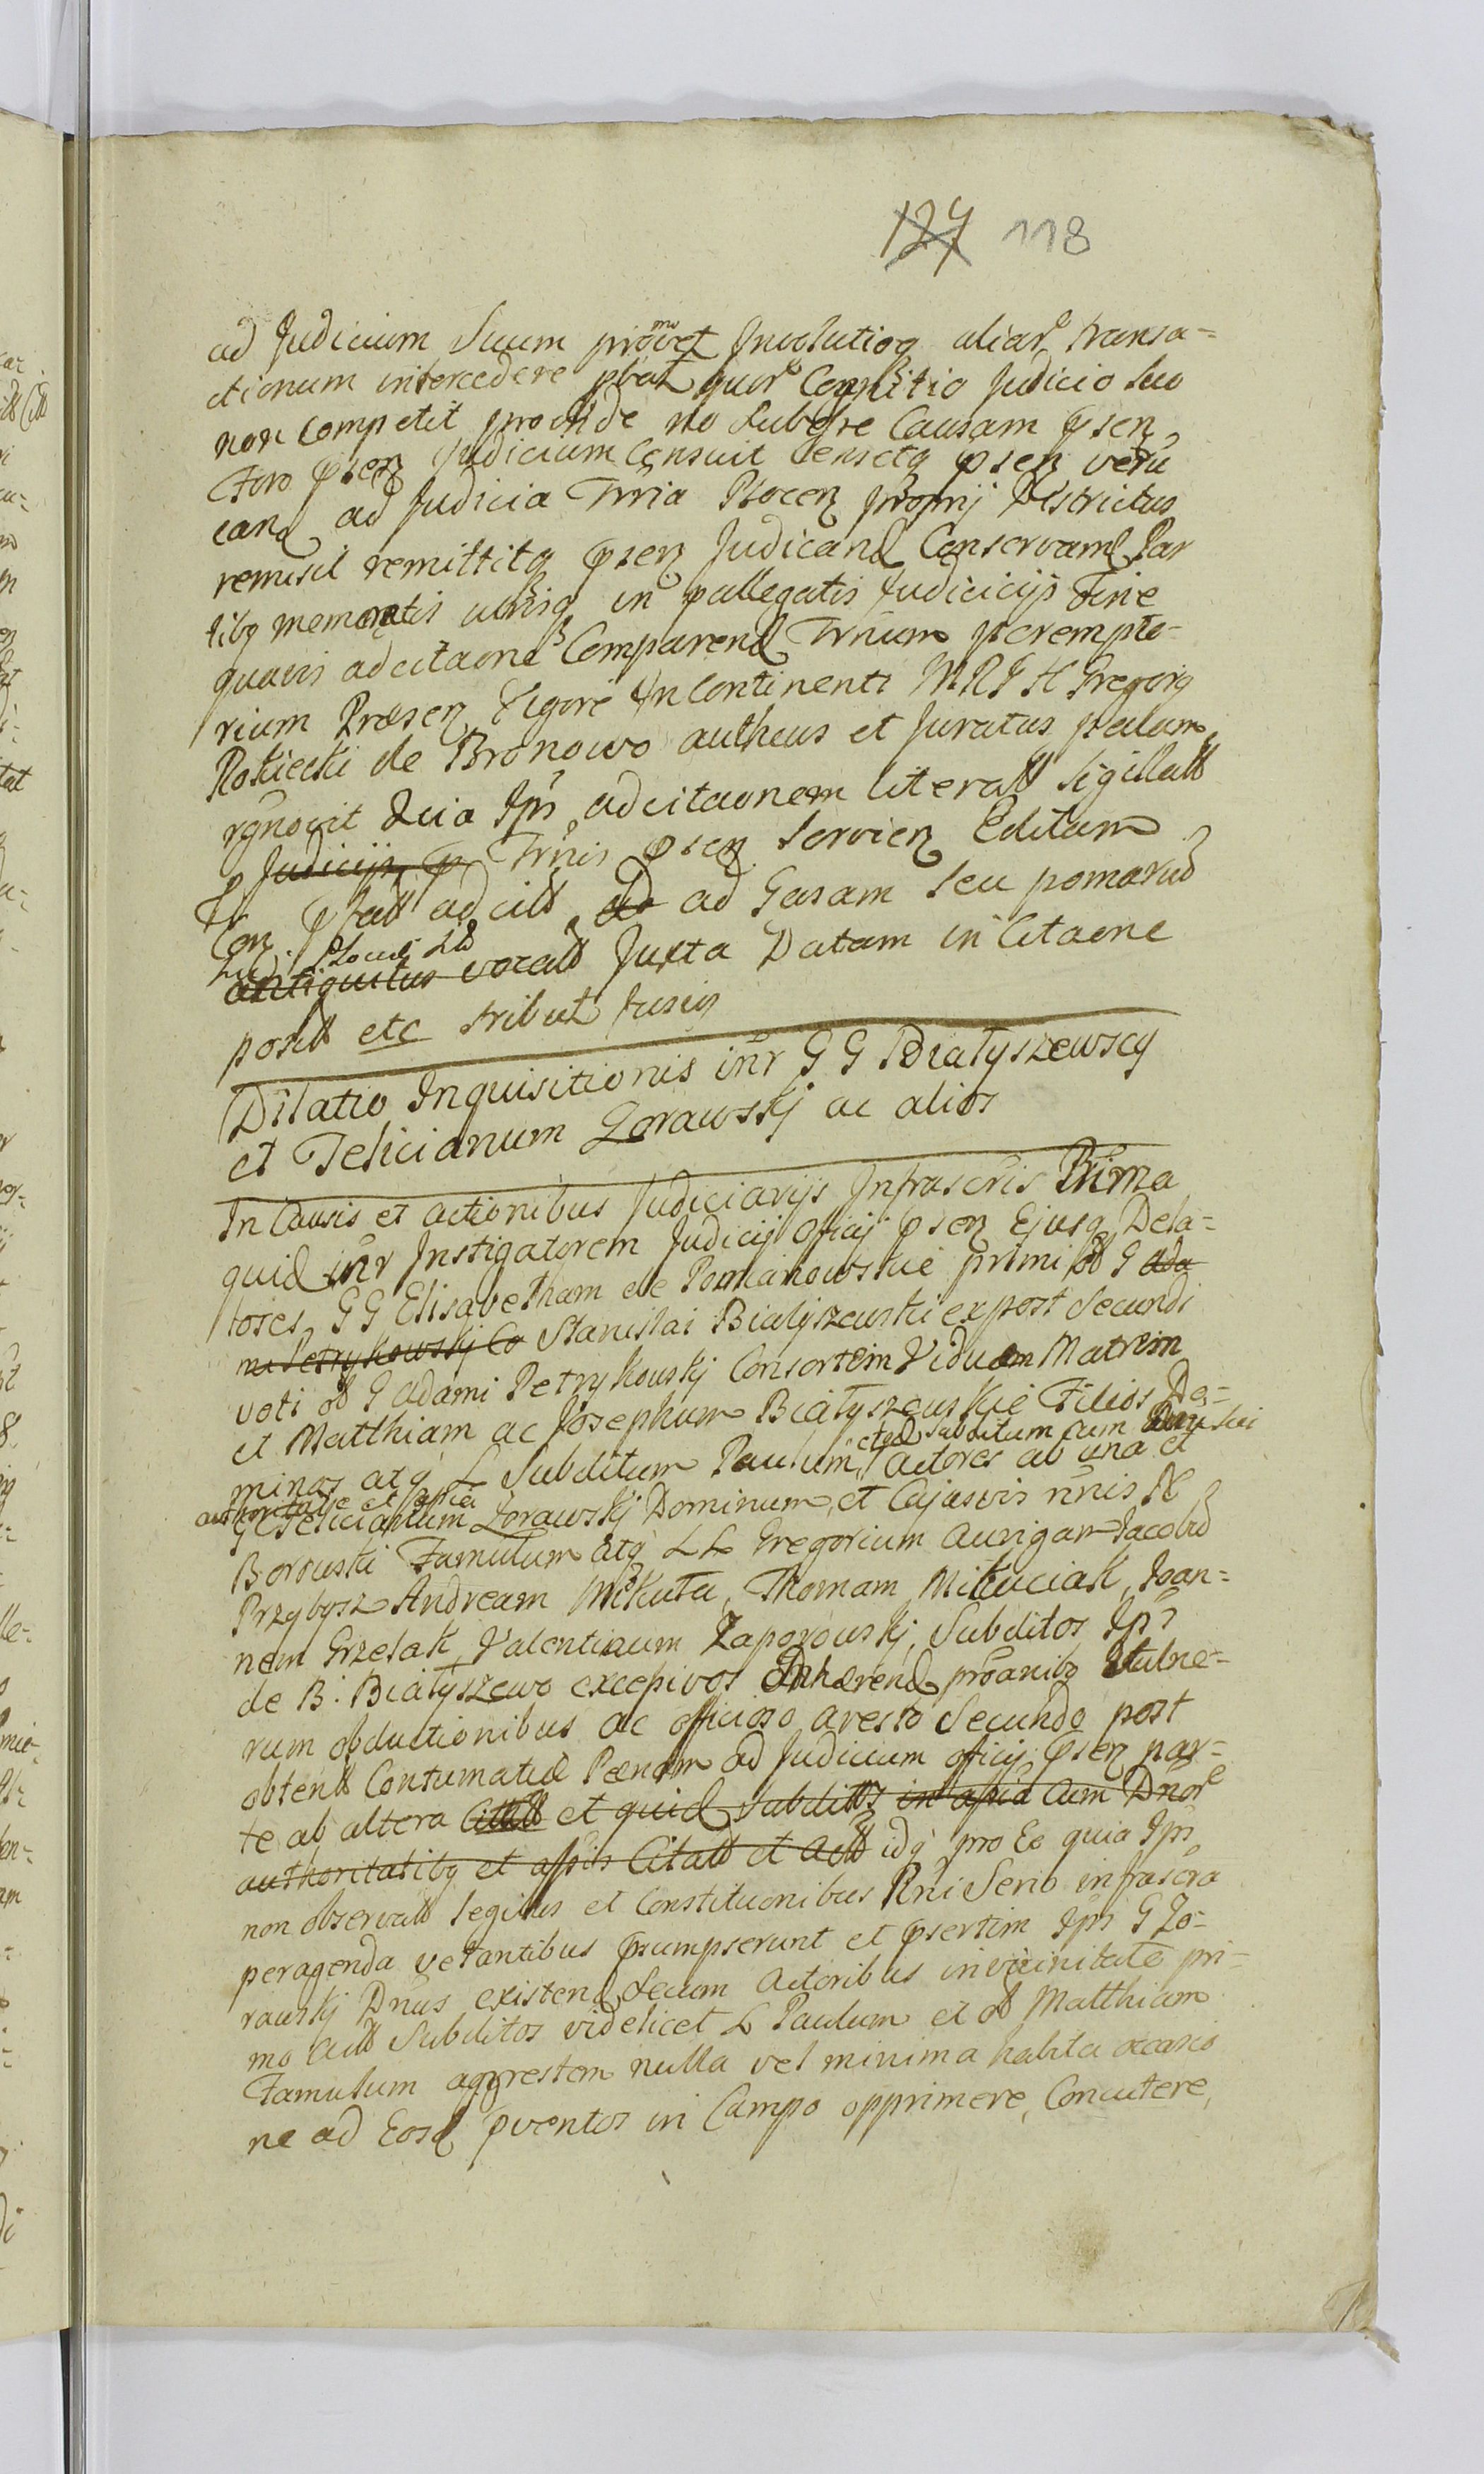 127 118
ad Judicium Suum Involutioq aliar transa-
ctionum intercedere pbat quor Cognitio Judicio Suo
non Competit proinde no Subesse Causam psen
Foro psen Judicium Censuit Censetq psen veru
eand ad Judicia Trria Plocen proprij Districtus
remisit remittitq psen Judicand Conservand Par
tibq memoratis utrisq in pallegatis Judicicijs Sine
quavis adcitaone Comparend Trnum perempto-
rium Præsen Vigore Incontinenti M.R.J H Gregorig
Rokiecki de Bronowo autheus et Juratus palam
rgnovit Quia Ips adcitaonem literatt Sigillatt
p Judicijs p Trnis psen Servien Editam
Con ptatt adcitt ad ad Gasam Seu pomariu
hic Plociis
antiquitus vocatt Juxta Datam in Citaone
positt etc tribut fusius
Dilatio Inquisitionis inr G G Białyszewscy
et Felicianum Zorawskj ac alios
In Causis et actionibus Judiciarijs Infrascris Prima
quid inr Instigatorem Judicij Officij psen Ejusq Dela-
tores GG Elisabetham de Romanowskie primi ol G ada
mi Petrykowskj Co Stanislai Bialyszewski expost Secundi
voti ol G Adami Petrykouskj Consortem Viduam Matrem
et Matthiam ac Josephum Białyszewskie Filios Do-
minos atq L Subditum Paulum Actores ab una et
etqd subditum cum Dnn Sui
authoritate et assia
G Felicianum Zorawskj Dominum et Cajusvis nnis N
Borouski Famulum atq LL Gregorium Aurigam Jacobu
Przybysz Andream Mikuta, Thomam Mikuciak, Joan-
nem Grzelak Valentinum Zaporouskj, Subditos Ips
de B. Białyszewo excepivos Inhærend proanibq Vulne-
rum obductionibus ac officioso aresto Secundo post
obtentt Contumatie Pœnam ad Judicium officij psen par-
te ab altera Citatt et quid Subditos in assia Cum Dnor
authoritatibq et assiis Citatt et Actt idq pro Eo quia Ips
non observatt legibus et Constitutionibus Rni Serio infrascra
peragenda vetantibus psumpserunt et psertim Ips G Zo-
rauskj Dnus existend Secum Actoribus in vicinitate pri-
mo Actt Subditos videlicet L Paulum et ol Matthiam
Famulum agrestem nulla vel minima habita occasio
ne ad Eosd pventos in Campo opprimere, Concutere,